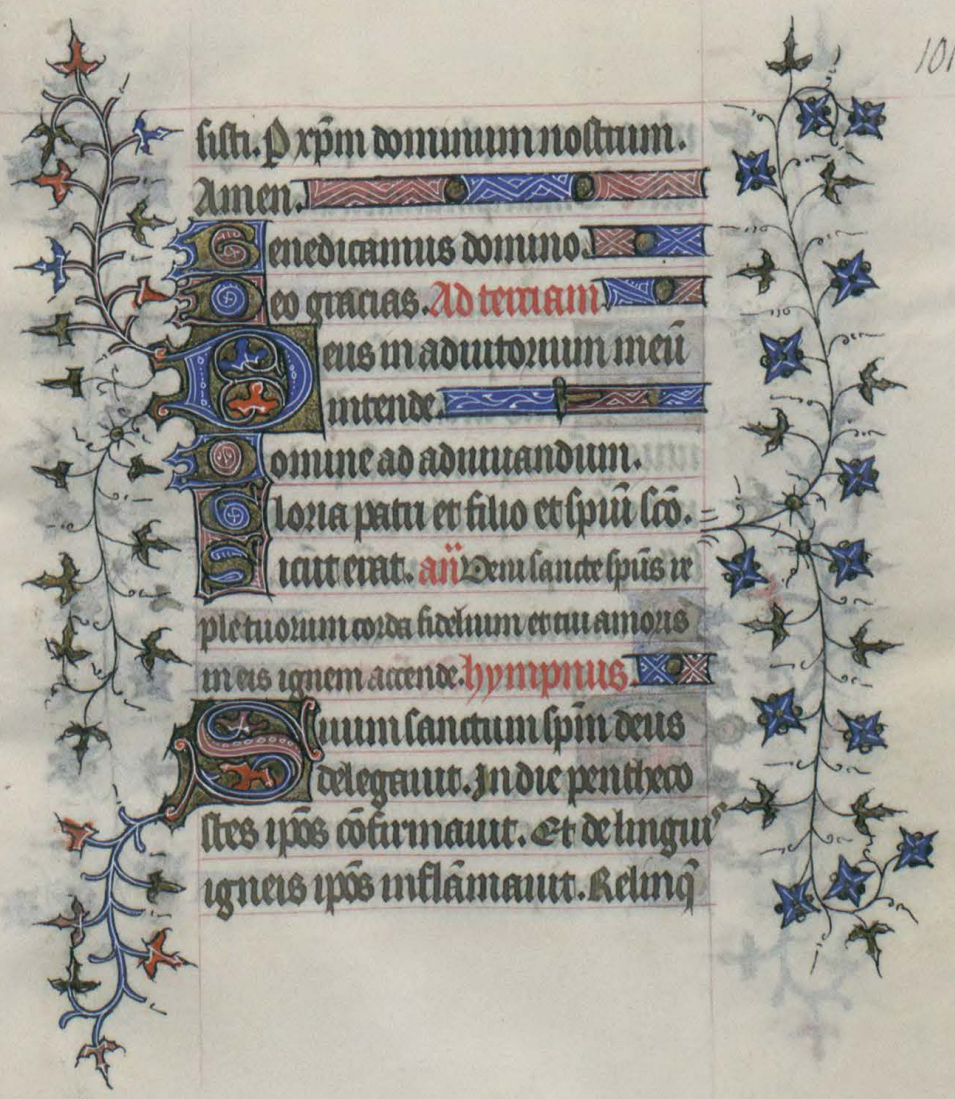 101
sisti. P xp̄m dominum nostrum.
Amen.
Benedicamus domino.
Deo gracias. Ad terciam
Deus in adiutorium meū
intende.
Domine ad adiuuandum.
Gloria patri et filio et spiū scō.
Sicut erat. añ Veni sancte spūs re
ple tuorum corda fidelium et tui amoris
in eis ignem accende. hympnus.
Suum sanctum spm̄ deus
delegauit. In die pentheco
stes ip̄os cōfirmauit. Et de linguis
igneis ip̄os inflāmauit. Relinq̄